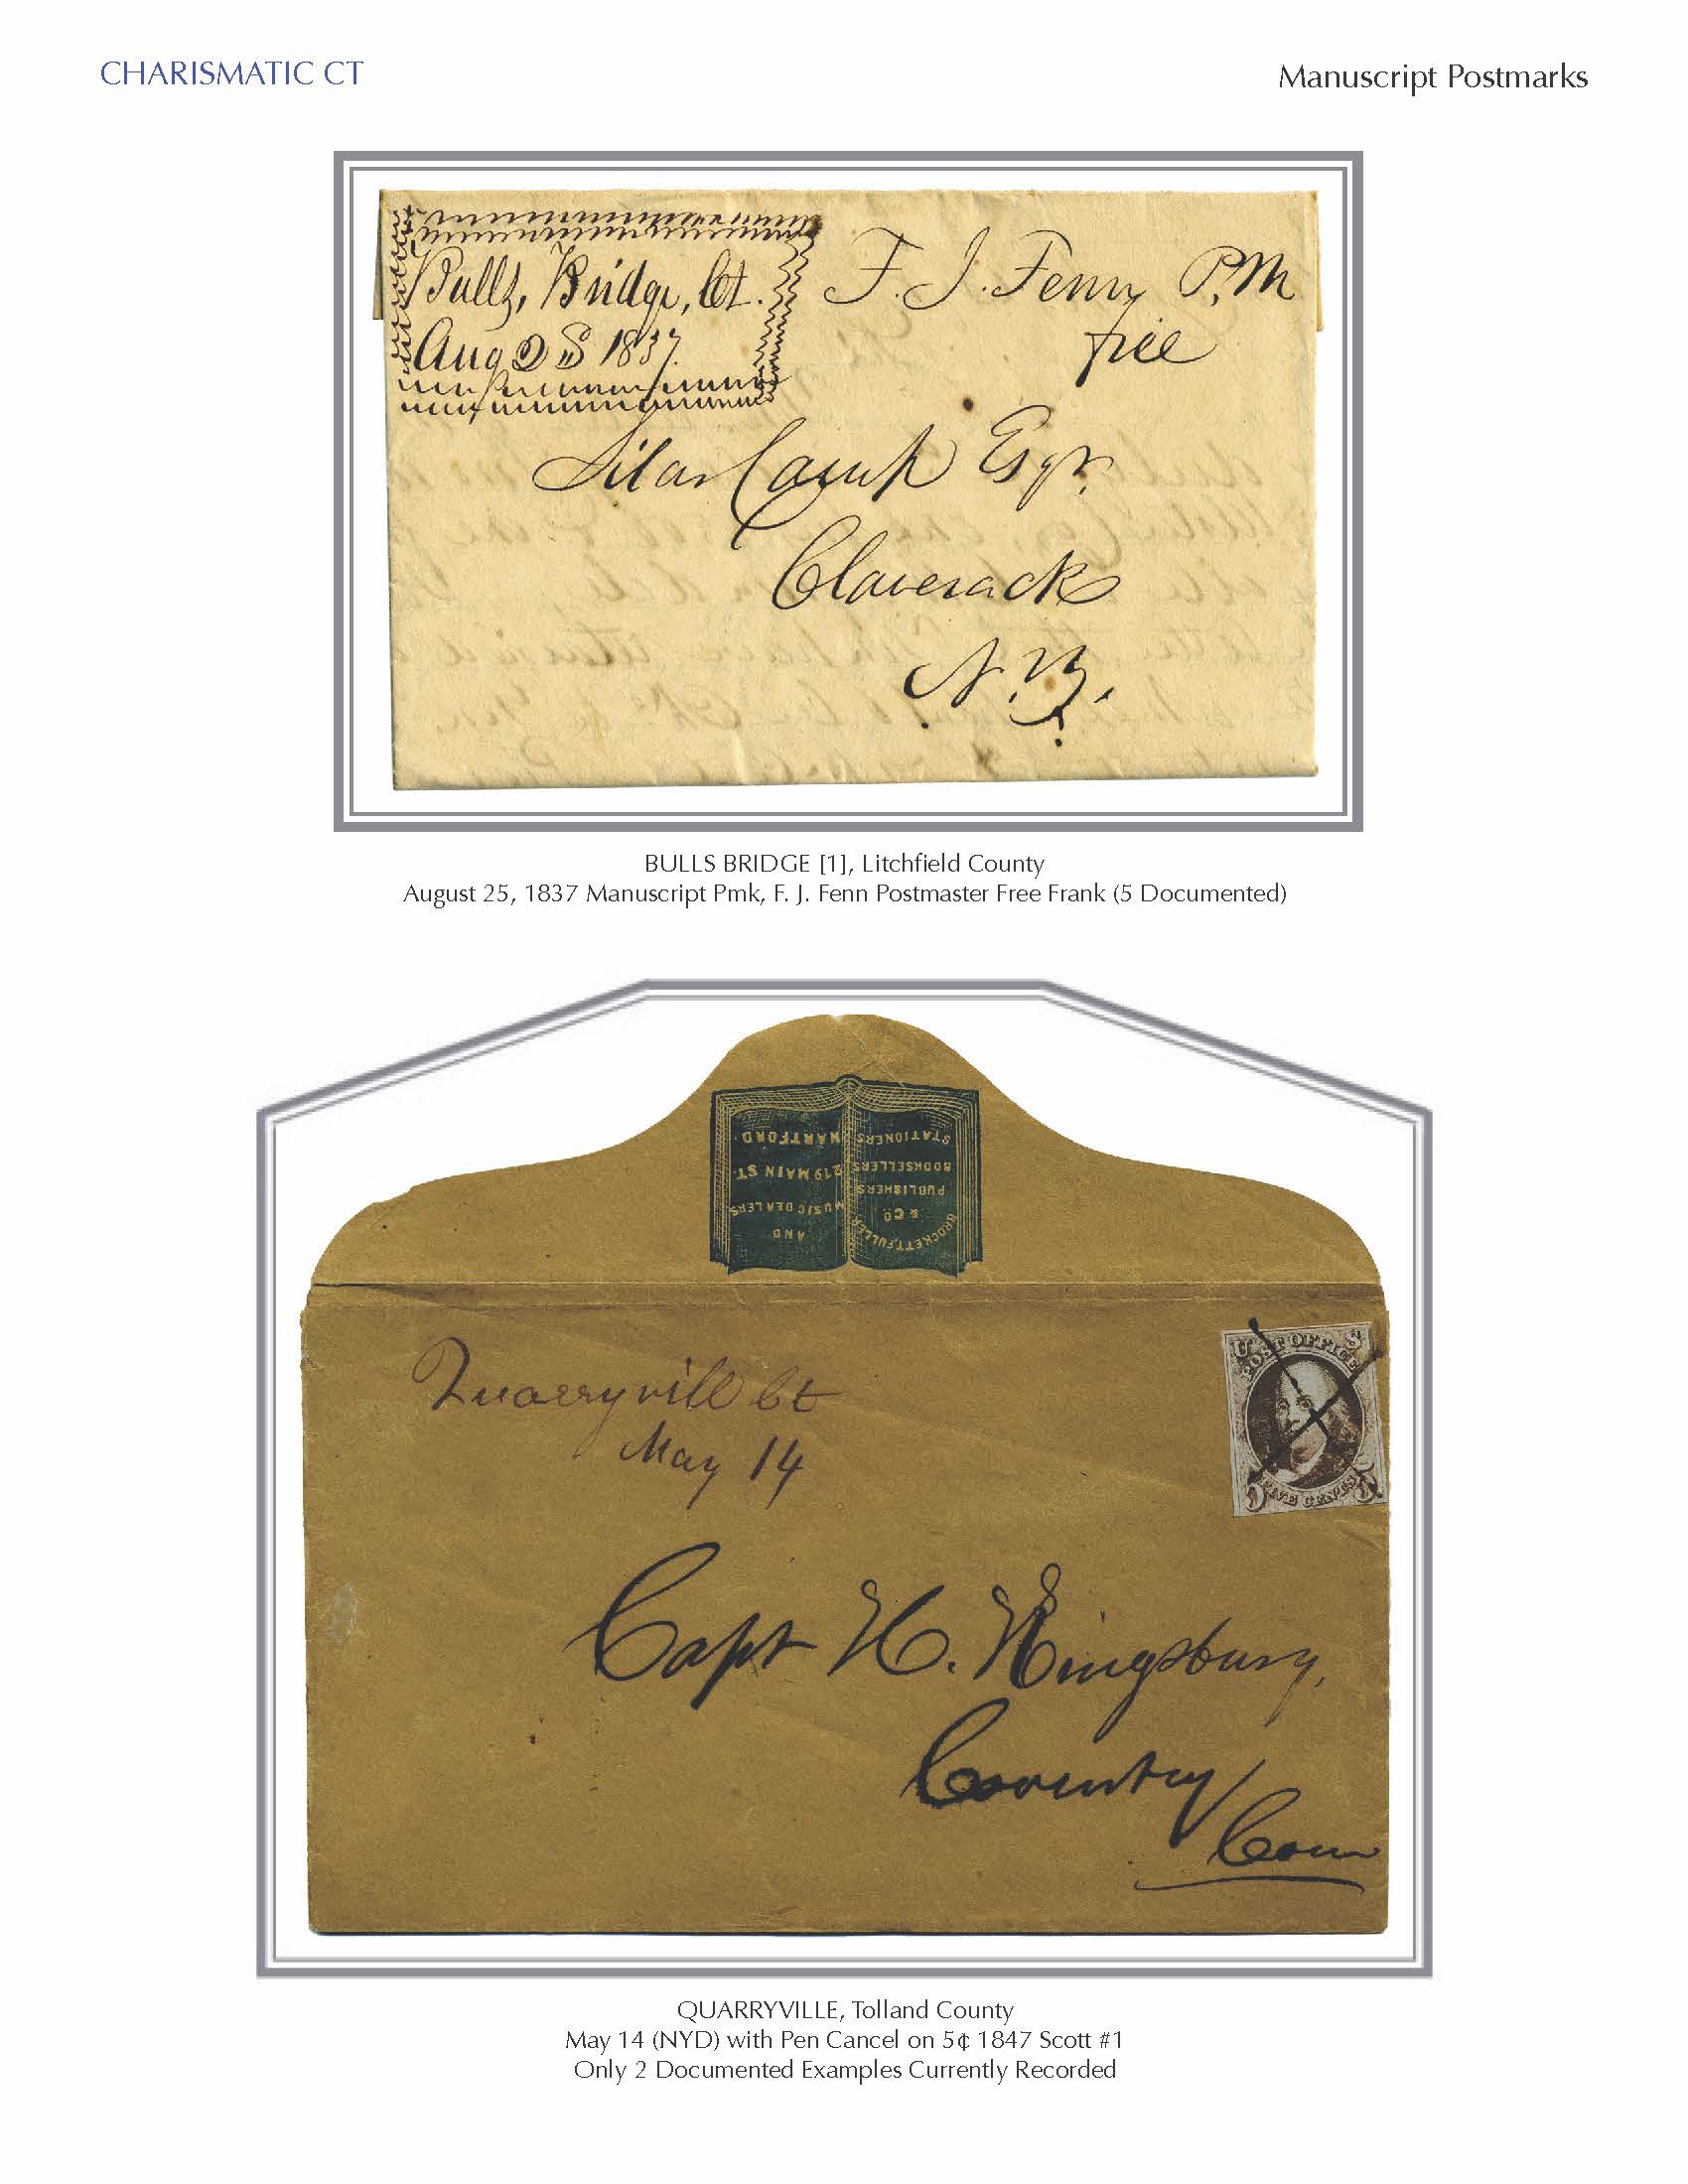 CHARISMATIC CT
Manuscript Postmarks
Bulls, Bridge, Ct.
Aug 25 1837.
F. J. Fenn P.M
free
Silas Camp Esqr.
Claverack
N.Y.
BULLS BRIDGE [1], Litchfield County
August 25, 1837 Manuscript Pmk, F. J. Fenn Postmaster Free Frank (5 Documented)
BROCKETT, FULLER
& CO.
PUBLISHERS
BOOKSELLERS
STATIONERS
AND
MUSIC DEALERS
219 MAIN ST.
HARTFORD.
Quarryvill Ct
May 14
U S
POST OFFICE
FIVE CENTS
Capt H. Kingsbury,
Coventry
Conn
QUARRYVILLE, Tolland County
May 14 (NYD) with Pen Cancel on 5¢ 1847 Scott #1
Only 2 Documented Examples Currently Recorded